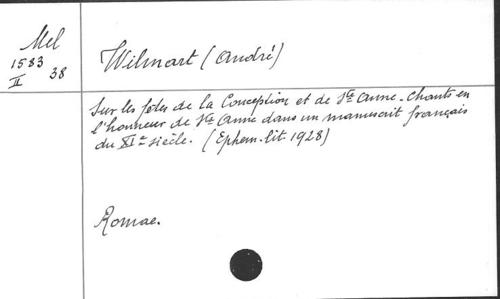 Mel
1583
II
38
Wilmart (André)
Sur les fêtes de la Conception et de Ste Anne - Chants en
l'honneur de Ste Anne dans un manuscrit français
du XIe siècle. (Ephem. lit. 1928)
Romae.